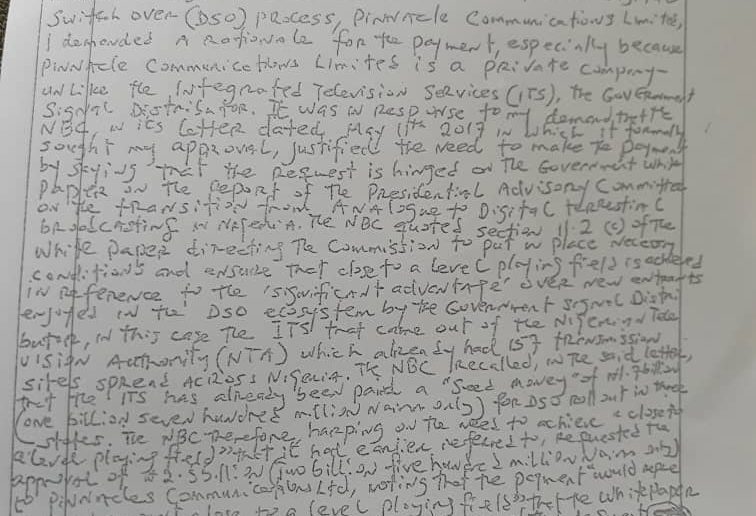 Switch over (DSO) process, Pinnacle Communications Limited,
I demanded a rationale for the payment, especially because
Pinnacle Communications Limited is a private company-
unlike the Integrated Television Services (ITS), the Government
Signal Distributor. It was in response to my demand, that the
NBC, in its letter dated, May 11th 2017 in which it formally
sought my approval, justified the need to make the payment
by saying that the request is hinged on the Government white
paper on the report of the Presidential Advisory Committee
on the transition from Analogue to Digital terrestrial
broadcasting in Nigeria. The NBC quoted section 11.2 (c) of the
white paper directing the Commission to put in place necessary
conditions and ensure that close to a level playing field is achieved
in reference to the 'significant advantage' over new entrants
enjoyed in the DSO ecosystem by the Government signal Distri
butor, in this case the ITS that came out of the Nigerian Tele
vision Authority (NTA) which already had 157 transmission
sites spread across Nigeria. The NBC recalled, in the said letter,
that the ITS has already been paid a "seed money" of N1.7billion
(one billion seven hundred million Naira only) for DSO roll out in three
states. The NBC therefore, harping on the need to achieve "close to
a level playing field" that it had earlier referred to, requested the
approval of N2.5billion (Two billion five hundred million Naira only)
to Pinnacles Communications Ltd, noting that the payment "would
to a level playing field" that the white paper